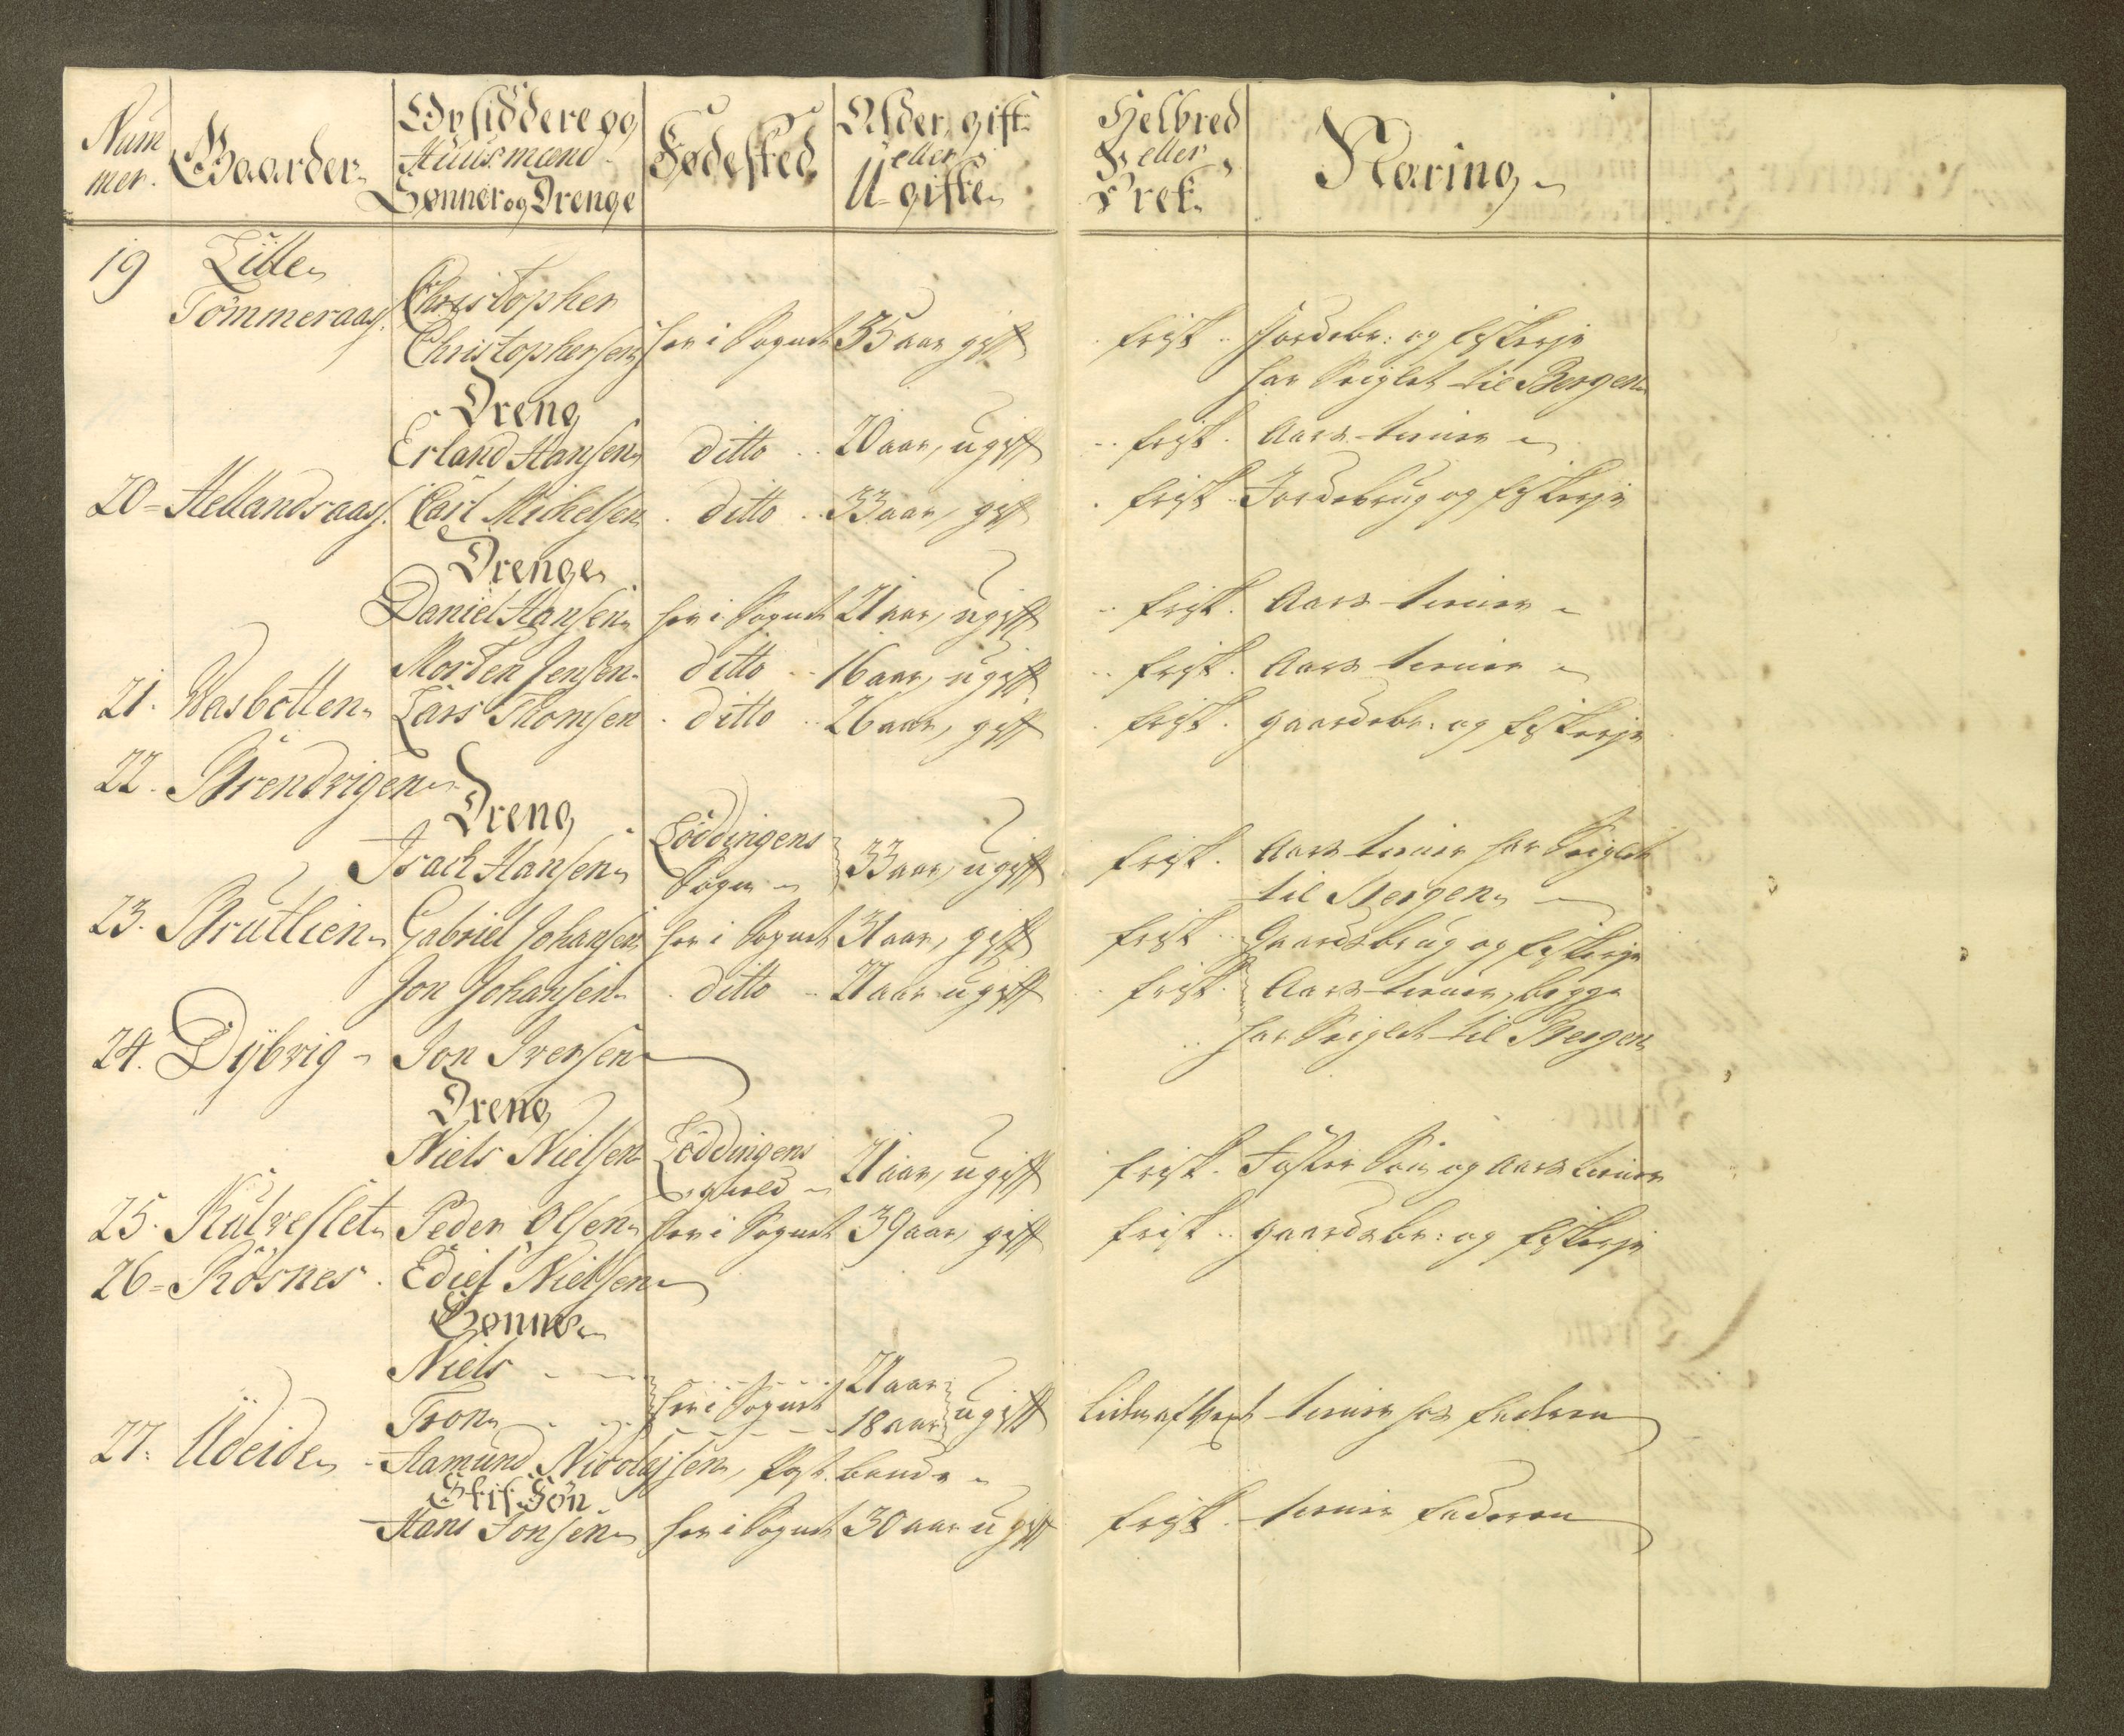 Num
mer.
Gaarder
Opsiddere og
Huusmænd
Sønner og Drenge
Fødested
Alder, gift
eller
U-gifte
Helbred
eller
Fræk
Næring
19 Lille
Tömmeraas. Christopher
Christophersen her i Sognet 35 aar gift frisk Jordebr: og fiskerje
har Seiglet til Bergen
Dreng
Erland Hansen ditto 20 aar, ugift frisk. Aars tiener
20 Hellandsaas. Carl Michelsen ditto 33 aar, gift frisk Jordebrug og fiskerje
Drenge
Daniel Hansen her i Sognet 21 aar, ugift frisk. Aars tiener
Morten Jensen. ditto 16 aar, ugift frisk. Aars tiener
21. Wasbotten Lars Thomsen ditto 26 aar, gift frisk. gaardebr: og fiskerje
22. Brendvigen
Dreng
Isach Hansen Löddingens
Sogn 33 aar, ugift frisk. Aars tiener har Seiglet
til Bergen
23. Brutlien Gabriel Johansen her i Sognet 31 aar, gift frisk Gaardsbrug og fiskerje
Jon Johansen ditto 21 aar ugift frisk. Aars tiener, begge
har Seiglet til Bergen
24. Dÿbvig Jon Iversen
Dreng
Niels Nielsen Löddingens
gield 21 aar, ugift frisk. Foster Søn og Aars tiener
25. Kulveslet Peder Olsen her i Sognet 39 aar, gift frisk gaardsbr: og fiskerje
26 Rösnes. Edies Nielsen
Sønner
Niels 21 aar
Tron her i Sognet 18 aar ugift liden af Vext tiener hos faderen
27. Udeide Aamund Nicolajsen, Post bonde
Stif Søn
Hans Jonsen her i Sognet 30 aar ugift frisk. tiener faderen